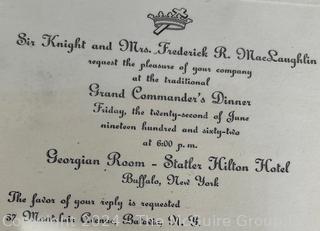 Sir Knight and Mrs. Frederick R. MacLaughlin
request the pleasure of your company
at the traditional
Grand Commander's Dinner
Friday, the twenty-second of June
nineteen hundred and sixty-two
at 6:00 p.m.
Georgian Room - Statler Hilton Hotel
Buffalo, New York
The favor of your reply is requested
37 Avenue, Batavia, N.Y.